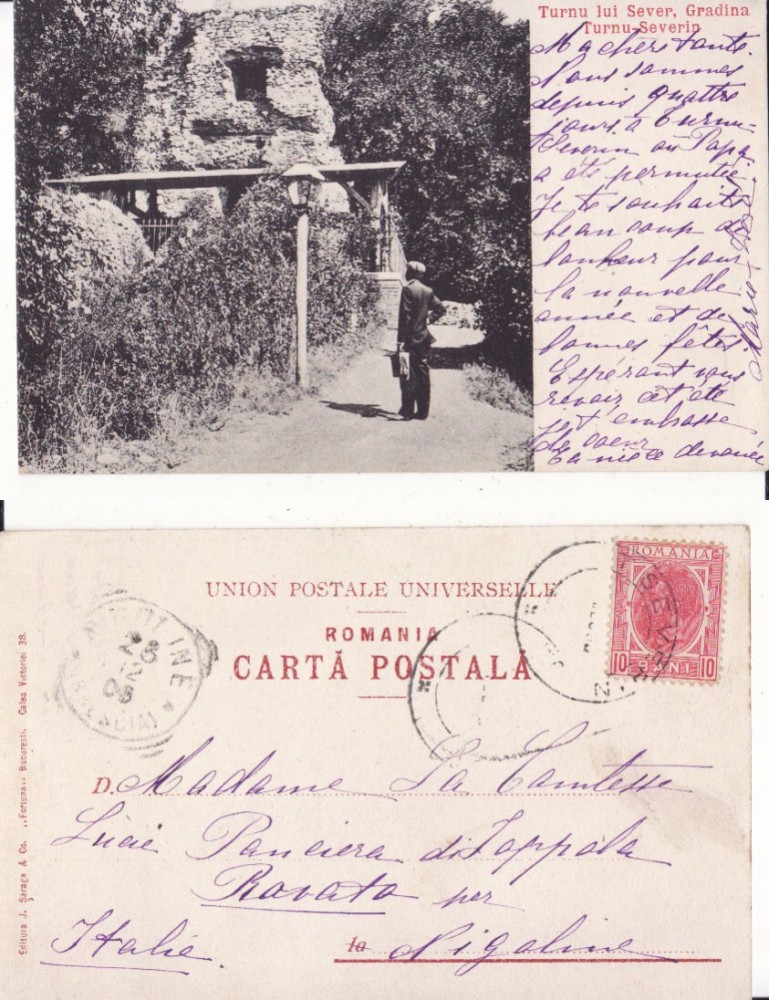 Turnu lui Sever, Gradina
Turnu-Severin
Ma chere tante.
Nous sommes
depuis quattre
jours à Turnu-
Severin où Papa
a éte permutée.
Je te souhaits
beaucoup de
bonheur pour
la nouvelle
année et de
bonnes fêtes
Espérant vous
revoir cet été
je t embrasse
de coeur
Ta nièce devouée
UNION POSTALE UNIVERSELLE
ROMANIA
CARTĂ POSTALĂ
ROMANIA
10 BANI 10
SEVERIN
NIGOLINE
23
12
06
(BRESCIA)
D. Madame La Comtesse
Lucie Panciera di Zoppola
Rovato per
Italie. la Nigoline
Editura J. Şaraga & Co. „Fortuna" Bucuresti. Calea Victoriei 38.